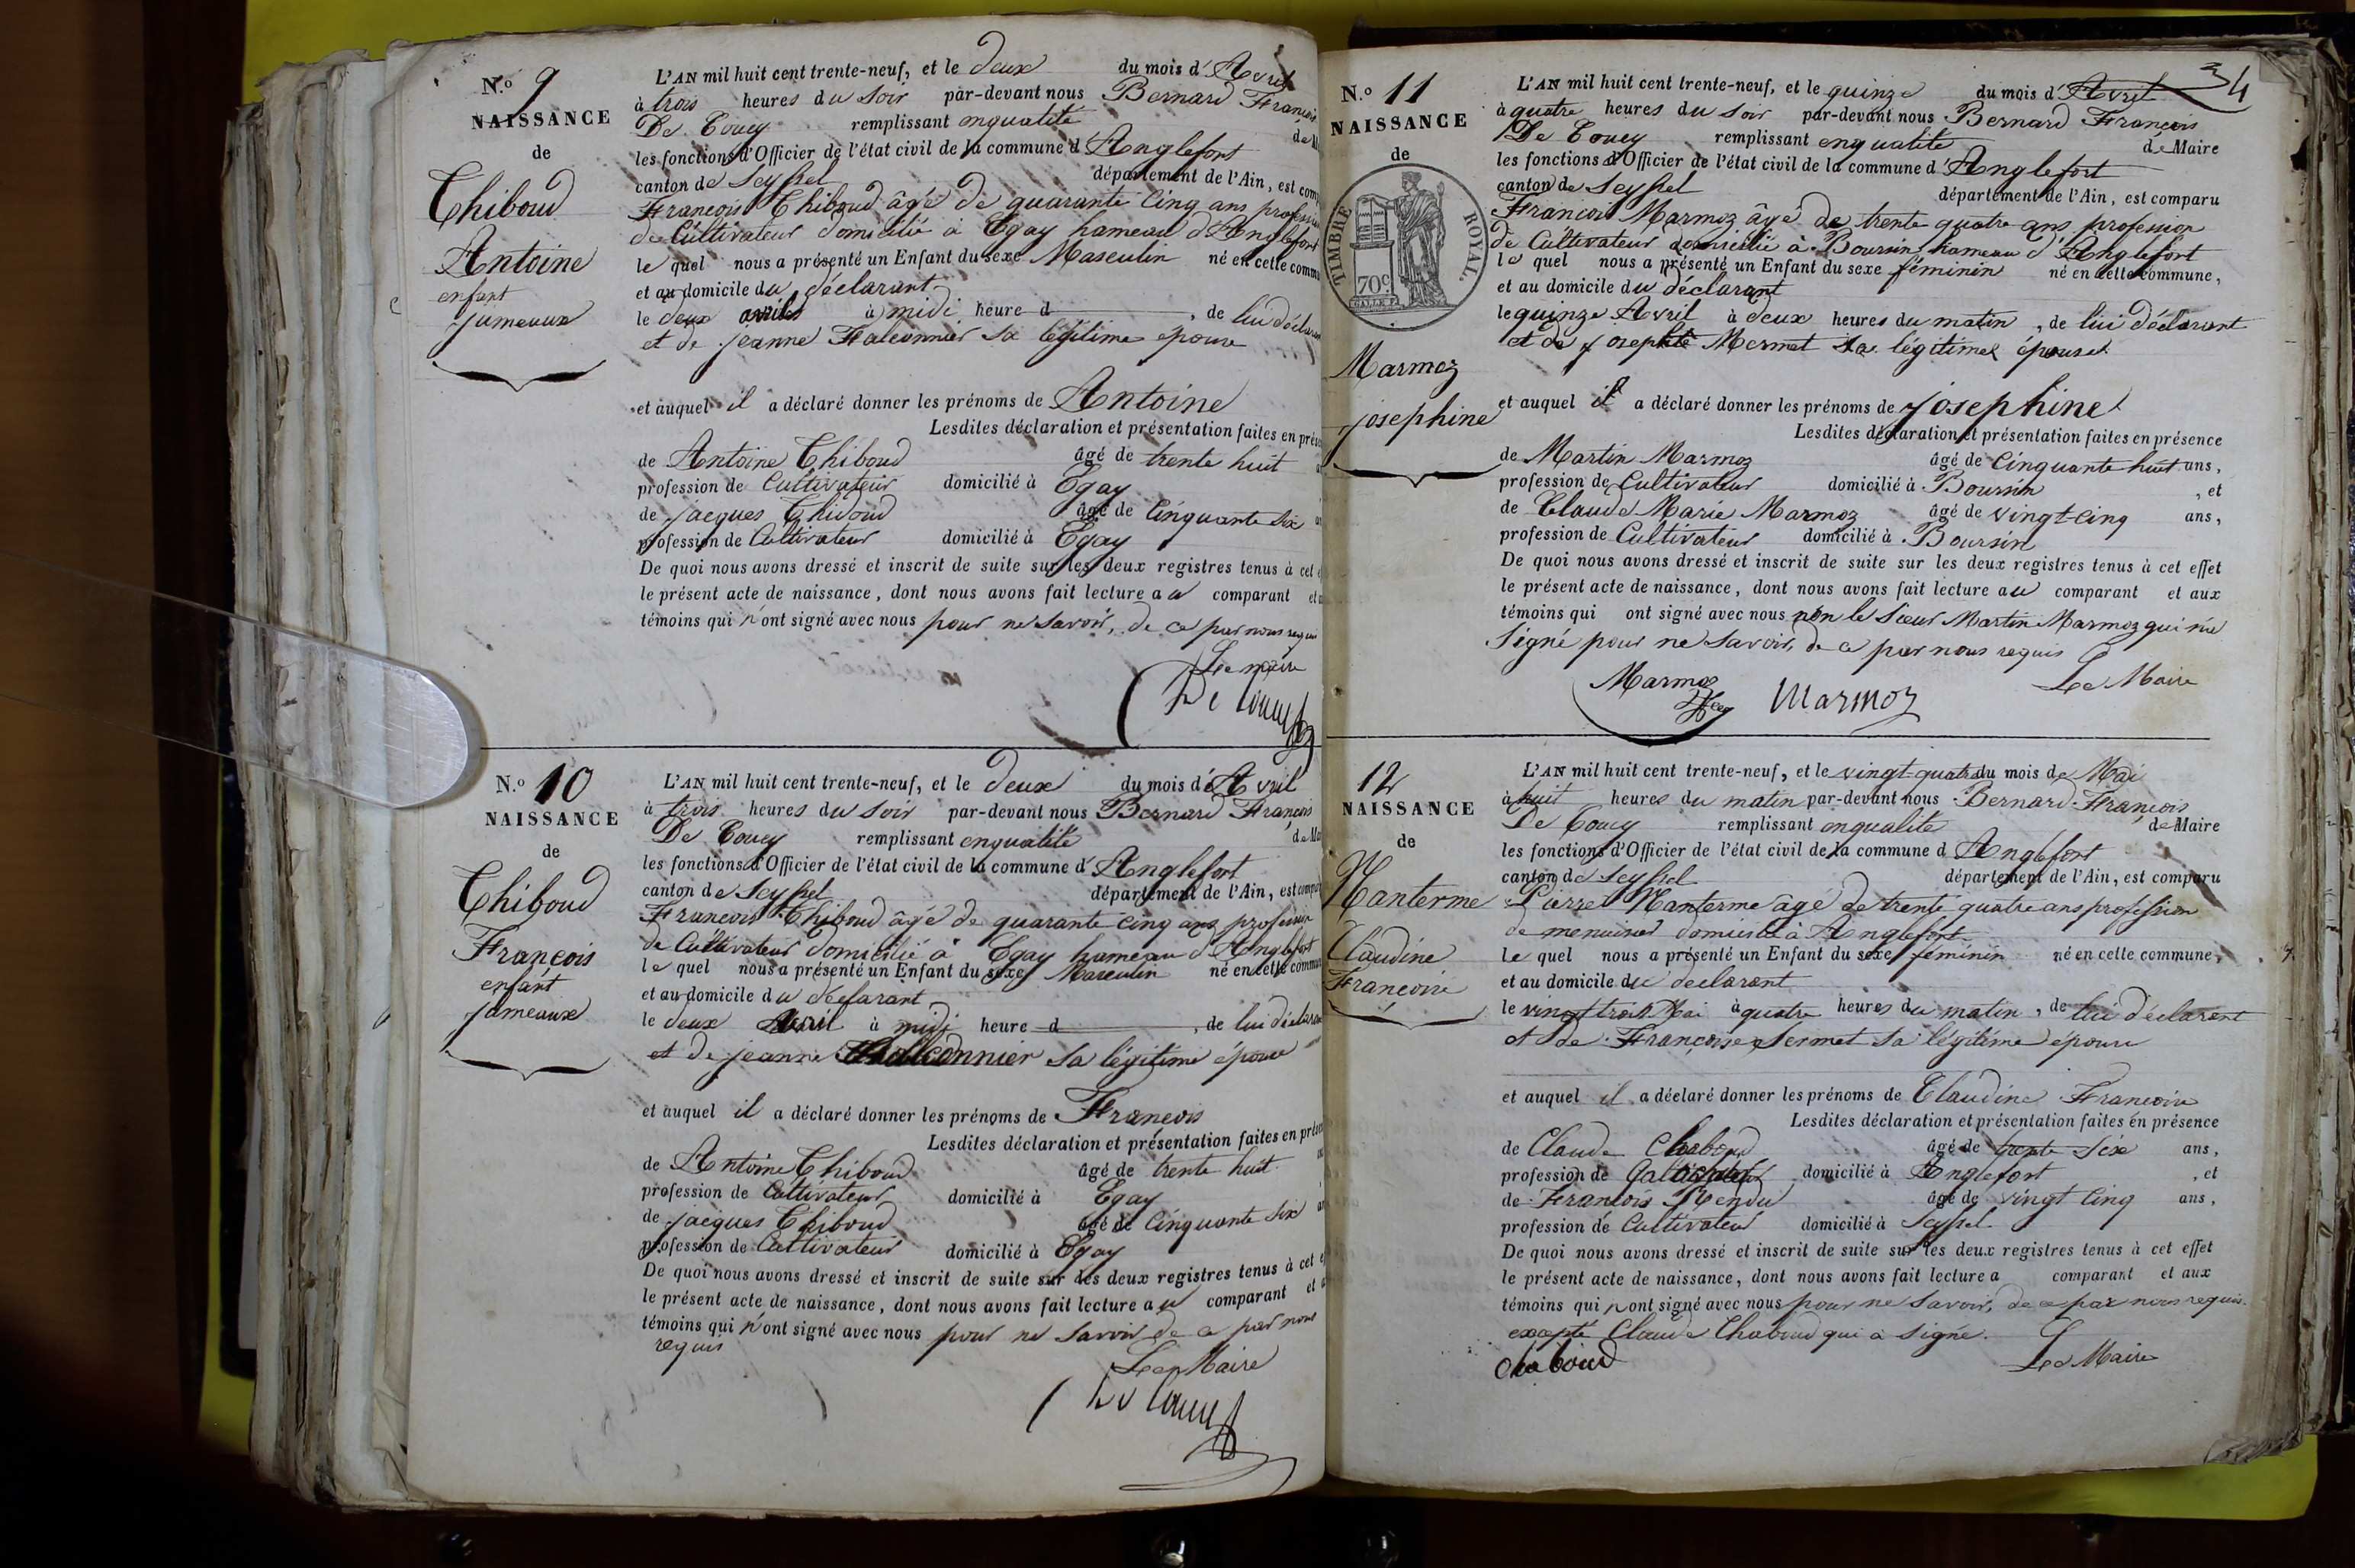 N.o 9
NAISSANCE
de
Thiboud
Antoine
enfant
jumeaux
L'AN mil huit cent trente-neuf, et le deux du mois d'Avril
à trois heures du soir par-devant nous Bernard François
De Coucy remplissant enqualité de M
les fonctions d'Officier de l'état civil de la commune d'Anglefort
canton de Seyssel département de l'Ain, est comp
François Thiboud âgé de quarante cinq ans profession
de Cultivateur domicilié à Egay hameau d'Anglefort
le quel nous a présenté un Enfant du sexe Masculin né en cette commu
et au domicile du déclarant
le deux avril à midi heure d , de lui déclarant
et de jeanne Falconnier sa légitime épouse
et auquel il a déclaré donner les prénoms de Antoine
Lesdites déclaration et présentation faites en prés
de Antoine Thiboud âgé de trente huit
profession de Cultivateur domicilié à Egay
de jacques Thiboud âgé de Cinquante Six
profession de Cultivateur domicilié à Egay
De quoi nous avons dressé et inscrit de suite sur les deux registres tenus à cet
le présent acte de naissance, dont nous avons fait lecture au comparant et
témoins qui n'ont signé avec nous pour ne savoir, de ce par nous requis
Le maire
De Coucy
N.o 10
NAISSANCE
de
Thiboud
François
enfant
jumeaux
L'AN mil huit cent trente-neuf, et le deux du mois d'Avril
à trois heures du soir par-devant nous Bernard François
De Coucy remplissant enqualité de Ma
les fonctions d'Officier de l'état civil de la commune d'Anglefort
canton de Seyssel département de l'Ain, est comparu
François Thiboud âgé de quarante cinq ans profession
de Cultivateur domicilié à Egay hameau d'Anglefort
le quel nous a présenté un Enfant du sexe Masculin né en cette commun
et au domicile du déclarant
le deux Avril à midi heure d , de lui déclarant
et de jeanne Falconnier sa légitime épouse
et auquel il a déclaré donner les prénoms de François
Lesdites déclaration et présentation faites en prése
de Antoine Thiboud âgé de trente huit
profession de Cultivateur domicilié à Egay
de jacques Thiboud âgé de Cinquante Six
profession de Cultivateur domicilié à Egay
De quoi nous avons dressé et inscrit de suite sur les deux registres tenus à cet
le présent acte de naissance, dont nous avons fait lecture au comparant et
témoins qui n'ont signé avec nous pour ne savoir de ce par nous
requis
Le Maire
De Coucy
34
N.o 11
NAISSANCE
de
TIMBRE ROYAL.
70c
Marmoz
josephine
L'AN mil huit cent trente-neuf, et le quinze du mois d'Avril
à quatre heures du soir par-devant nous Bernard François
De Coucy remplissant enqualité de Maire
les fonctions d'Officier de l'état civil de la commune d'Anglefort
canton de Seyssel département de l'Ain, est comparu
François Marmoz âgé de trente quatre ans profession
de Cultivateur domicilié à Boursin hameau d'Anglefort
le quel nous a présenté un Enfant du sexe féminin né en cette commune,
et au domicile du déclarant
le quinze Avril à deux heures du matin, de lui déclarant
et de josephte Mermet sa légitime épouse
et auquel il a déclaré donner les prénoms de josephine
Lesdites déclaration et présentation faites en présence
de Martin Marmoz âgé de Cinquante huit ans,
profession de Cultivateur domicilié à Boursin , et
de Claude Marie Marmoz âgé de vingt-cinq ans,
profession de Cultivateur domicilié à Boursin
De quoi nous avons dressé et inscrit de suite sur les deux registres tenus à cet effet
le présent acte de naissance, dont nous avons fait lecture au comparant et aux
témoins qui ont signé avec nous non le Sieur Martin Marmoz qui n'a
Signé pour ne savoir, de ce par nous requis
Le Maire
Marmoz Marmoz
12
NAISSANCE
de
Nanterme
Claudine
Françoise
L'AN mil huit cent trente-neuf, et le vingt-quatre du mois de Mai
à huit heures du matin par-devant nous Bernard François
De Coucy remplissant enqualité de Maire
les fonctions d'Officier de l'état civil de la commune d Anglefort
canton de Seyssel département de l'Ain, est comparu
Pierre Nanterme âgé de trente quatre ans profession
de menuisier domicilié à Anglefort
le quel nous a présenté un Enfant du sexe féminin né en cette commune,
et au domicile du déclarant
le vingt trois Mai à quatre heures du matin, de lui déclarant
et de Françoise Sermet sa légitime épouse
et auquel il a déclaré donner les prénoms de Claudine Françoise
Lesdites déclaration et présentation faites en présence
de Claude Chaboud âgé de trente Six ans,
profession de domicilié à Anglefort , et
de François Mendu âgé de vingt Cinq ans,
profession de Cultivateur domicilié à Seyssel
De quoi nous avons dressé et inscrit de suite sur les deux registres tenus à cet effet
le présent acte de naissance, dont nous avons fait lecture a comparant et aux
témoins qui n'ont signé avec nous pour ne savoir, de ce par nous requis.
excepté Claude Chaboud qui a signé.
Le Maire
chaboud